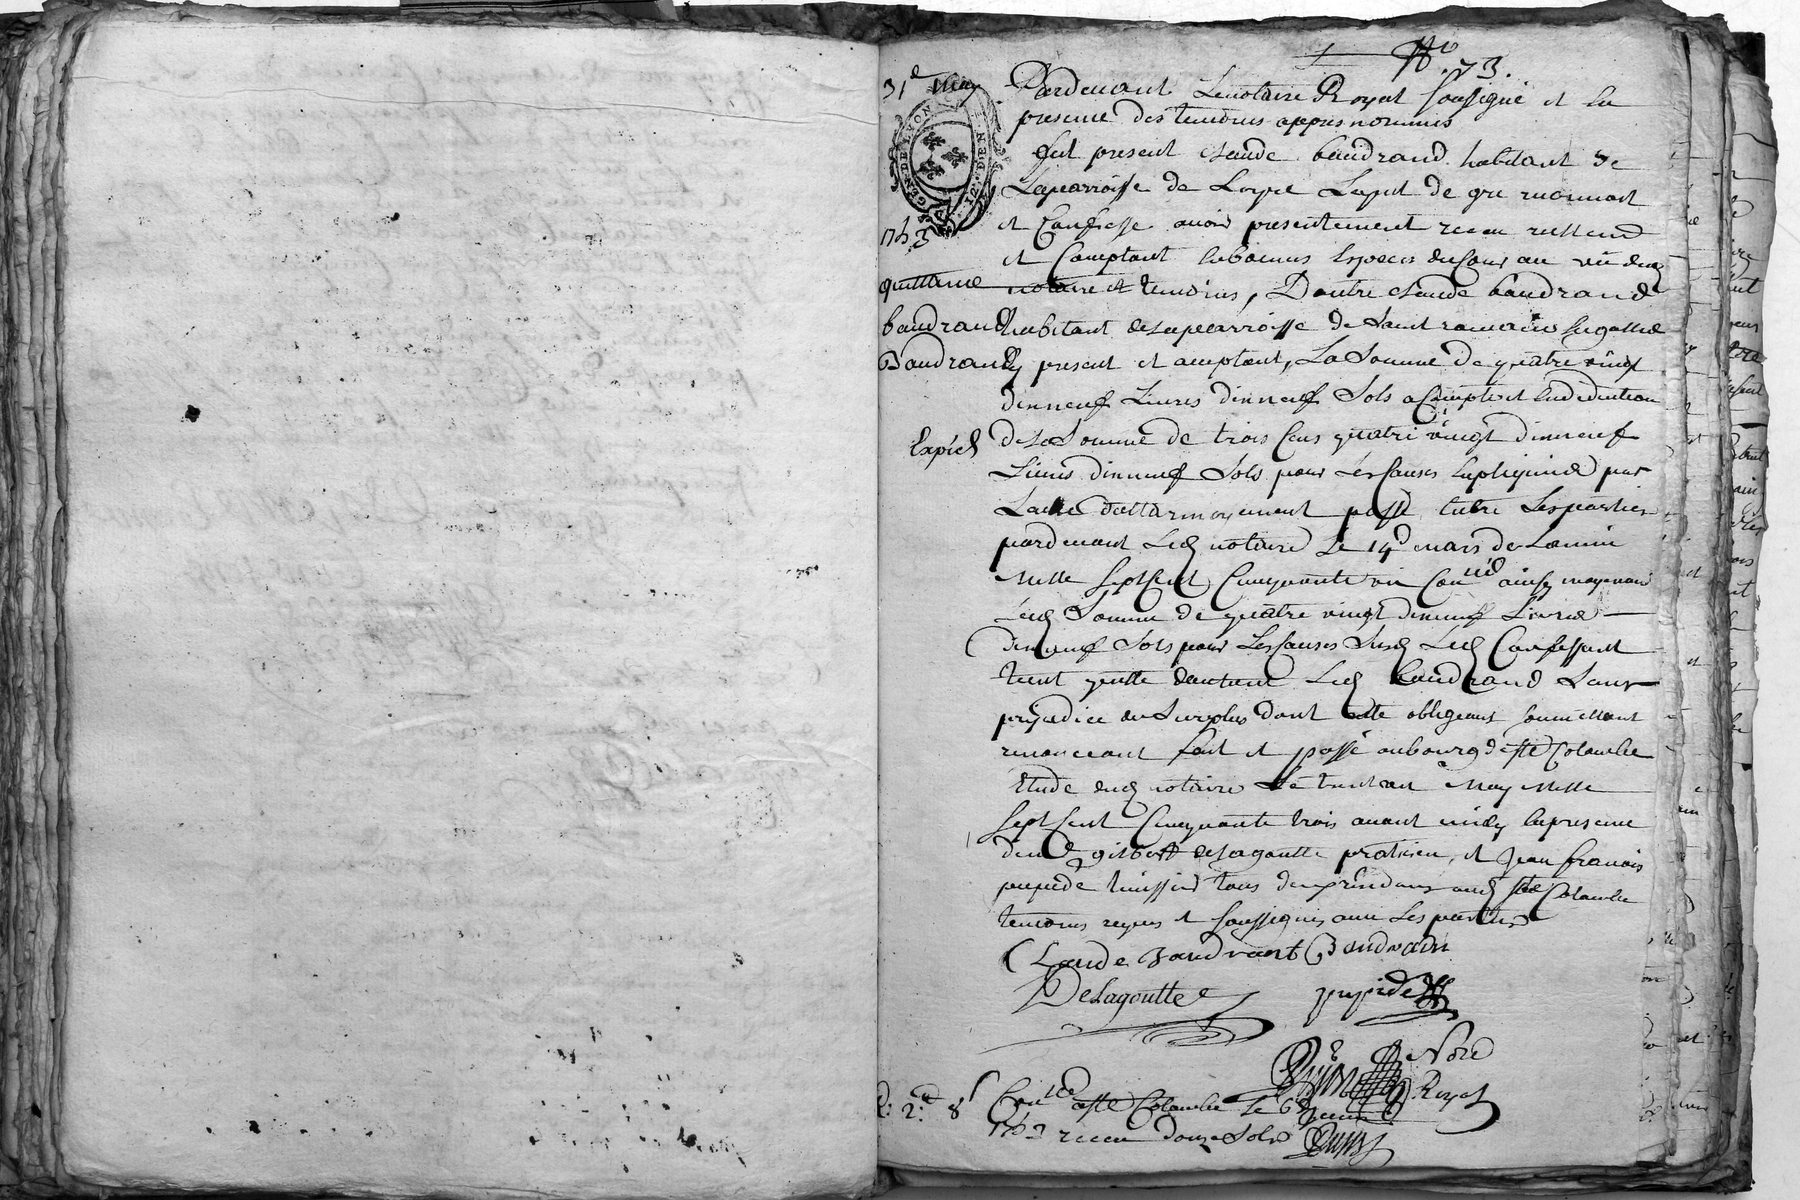 No 73.
31e May
Pardevant Lenotaire Royal soussigné et En
presence des temoins appres nommés
fut present Claude baudrand habitant de
Laparroisse de Loyre Lequel de gré reconnoit
1753
et Confesse avoir presentement receu
et Comptant En bonnes Especes du Cours au vû dud
quittance
notaire et temoins, Dautre Claude baudrand
baudrand
habitant de Laparroisse de Saint romain En gallie
Baudrand
y present et acceptant, La Somme de quatre vingt
dixneuf Livres dixneuf Sols a Compte et En deduction
Expied
de La Somme de trois Cens quatre vingt dixneuf
Livres dixneuf Sols pour Les Causes Expliquées par
Lacte dattermoyement passé Entre Les parties
pardevant Led notaire Le 14e mars de Lannée
Mille Sept Cent Cinquante un Conllé ainsy moyenant
Lad Somme de quatre vingt dixneuf Livres
dixneuf Sols pour Les Causes Susd Led Confessant
tient quitte dautant Led baudrand Sans
prejudice du Surplus dont acte obligeant soumettant
renonceant fait et passé au bourg de Ste Colombe
Etude dud notaire Le trente un May Mille
Sept Cent Cinquante trois avant midy En presence
de me gilbert delagoutte praticien, et Jean francois
pupide huissier tous deux residans aud Ste Colombe
temoins requis et soussignes avec Les parties
Claude Baudrant Baudrain
Delagoutte pupide
Nore
Royal
R: 2: d 8s
Conllé a Ste Colombe Le 6e juin
1753 receu douze Sols
GEN. DE LYON
12. DEN